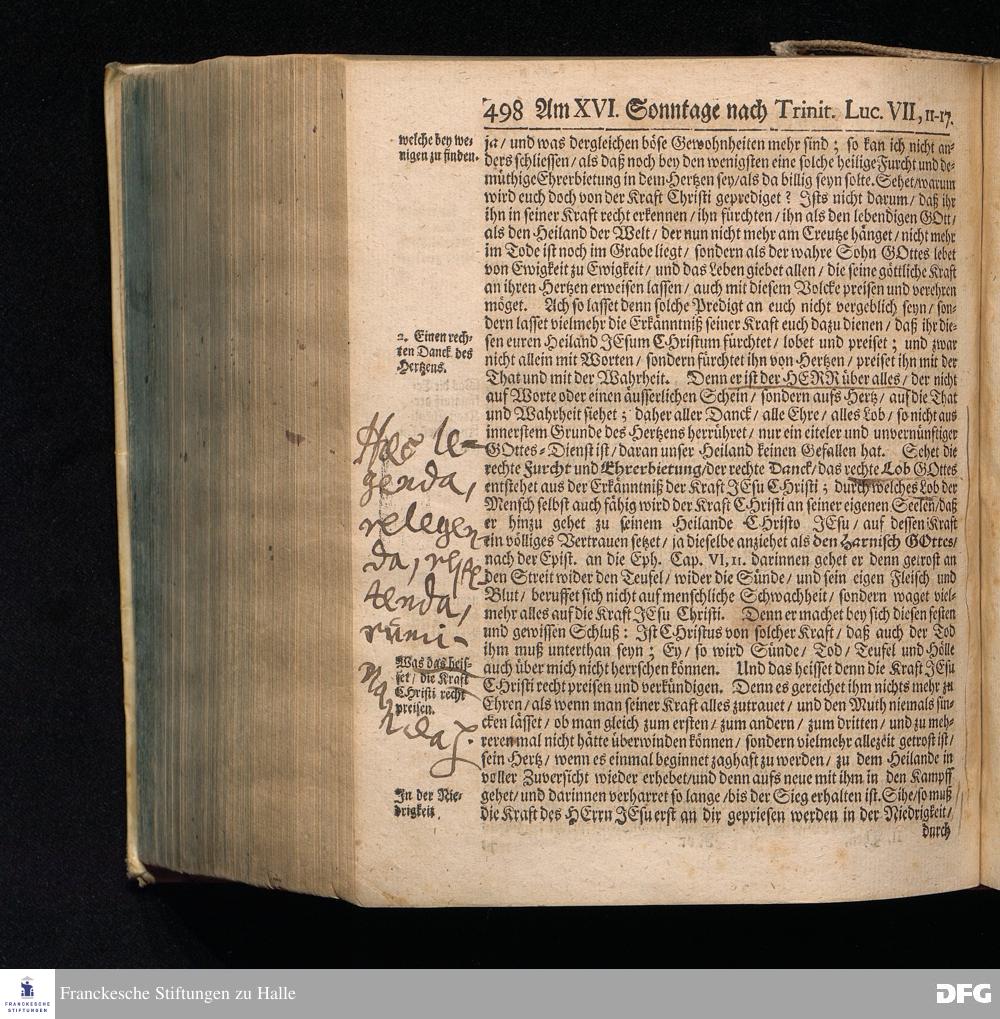 498 Am XVI. Sonntage nach Trinit. Luc. VII, 11-17.
welche bey we-
nigen zu finden.
ja / und was dergleichen böse Gewohnheiten mehr sind ; so kan ich nicht an-
ders schliessen / als daß noch bey den wenigsten eine solche heilige Furcht und de-
müthige Ehrerbietung in dem Hertzen sey / als da billig seyn solte. Sehet / warum
wird euch doch von der Kraft Christi geprediget ? Ists nicht darum / daß ihr
ihn in seiner Kraft recht erkennen / ihn fürchten / ihn als den lebendigen GOtt /
als den Heiland der Welt / der nun nicht mehr am Creutze hänget / nicht mehr
im Tode ist noch im Grabe liegt / sondern als der wahre Sohn GOttes lebet
von Ewigkeit zu Ewigkeit / und das Leben giebet allen / die seine göttliche Kraft
an ihren Hertzen erweisen lassen / auch mit diesem Volcke preisen und verehren
möget. Ach so lasset denn solche Predigt an euch nicht vergeblich seyn / son-
dern lasset vielmehr die Erkänntniß seiner Kraft euch dazu dienen / daß ihr die-
sen euren Heiland JEsum CHristum fürchtet / lobet und preiset ; und zwar
2. Einen rech-
ten Danck des
Hertzens.
nicht allein mit Worten / sondern fürchtet ihn von Hertzen / preiset ihn mit der
That und mit der Wahrheit. Denn er ist der HERR über alles / der nicht
auf Worte oder einen äusserlichen Schein / sondern aufs Hertz / auf die That
und Wahrheit siehet ; daher aller Danck / alle Ehre / alles Lob / so nicht aus
innerstem Grunde des Hertzens herrühret / nur ein eiteler und unvernünftiger
GOttes-Dienst ist / daran unser Heiland keinen Gefallen hat. Sehet die
rechte Furcht und Ehrerbietung / der rechte Danck / das rechte Lob GOttes
entstehet aus der Erkänntniß der Kraft JEsu CHristi ; durch welches Lob der
Mensch selbst auch fähig wird der Kraft CHristi an seiner eigenen Seelen / daß
er hinzu gehet zu seinem Heilande CHristo JEsu / auf dessen Kraft
ein völliges Vertrauen setzet / ja dieselbe anziehet als den Harnisch GOttes /
nach der Epist. an die Eph. Cap. VI, 11. darinnen gehet er denn getrost an
den Streit wider den Teufel / wider die Sünde / und sein eigen Fleisch und
Blut / beruffet sich nicht auf menschliche Schwachheit / sondern waget viel-
mehr alles auf die Kraft JEsu Christi. Denn er machet bey sich diesen festen
und gewissen Schluß : Ist CHristus von solcher Kraft / daß auch der Tod
ihm muß unterthan seyn ; Ey / so wird Sünde / Tod / Teufel und Hölle
Hæc le-
genda,
relegen-
da, repe-
tenda,
rumi-
nanda
Was das heis-
set / die Kraft
CHristi recht
preisen.
auch über mich nicht herrschen können. Und das heisset denn die Kraft JEsu
CHristi recht preisen und verkündigen. Denn es gereichet ihm nichts mehr zu
Ehren / als wenn man seiner Kraft alles zutrauet / und den Muth niemals sin-
cken lässet / ob man gleich zum ersten / zum andern / zum dritten / und zu meh-
reren mal nicht hätte überwinden können / sondern vielmehr allezeit getrost ist /
sein Hertz / wenn es einmal beginnet zaghaft zu werden / zu dem Heilande in
voller Zuversicht wieder erhebet / und denn aufs neue mit ihm in den Kampff
In der Nie-
drigkeit.
gehet / und darinnen verharret so lange / bis der Sieg erhalten ist. Sihe / so muß
die Kraft des HErrn JEsu erst an dir gepriesen werden in der Niedrigkeit /
durch
FRANCKESCHE
STIFTUNGEN
Franckesche Stiftungen zu Halle
DFG